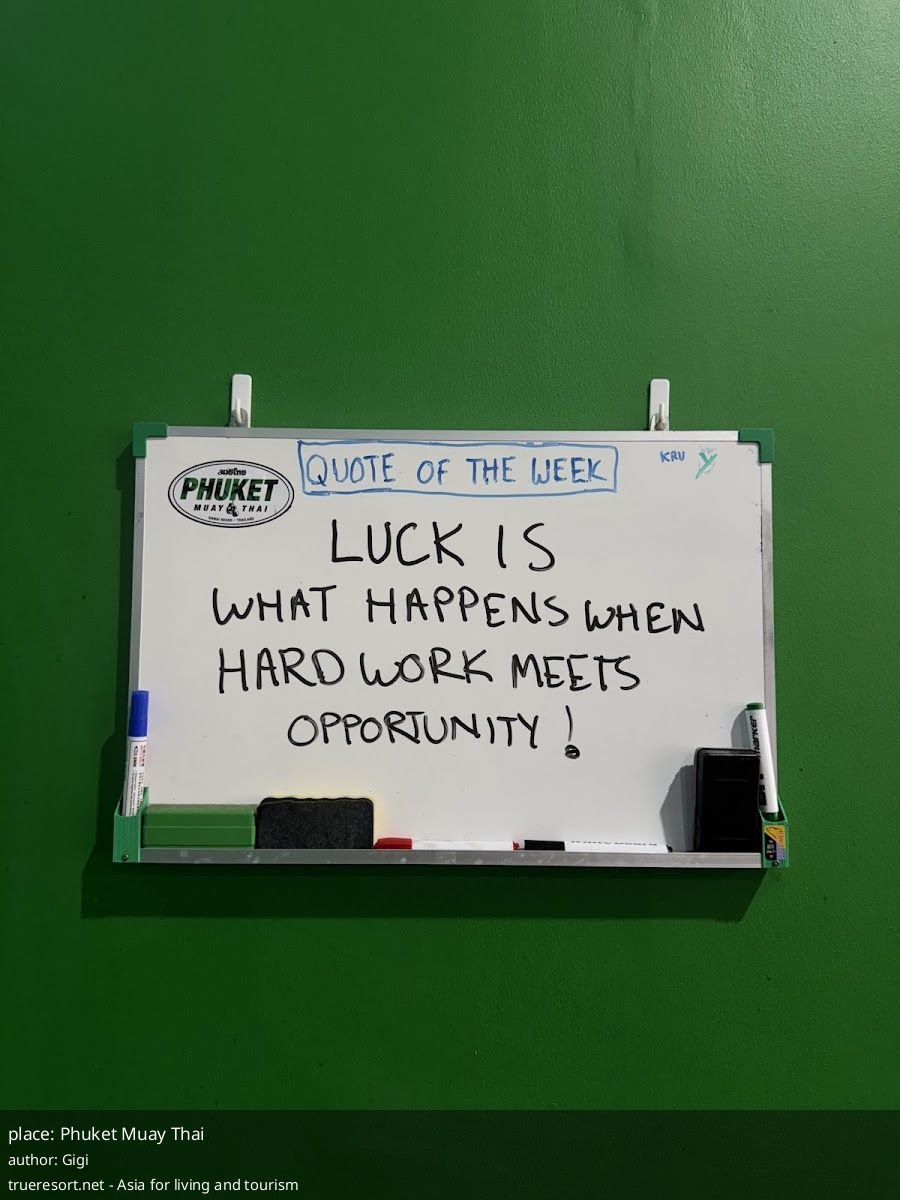 QUOTE OF THE WEEK
KRU
มวยไทย
PHUKET
MUAY THAI
RAWAI BEACH - THAILAND
LUCK IS
WHAT HAPPENS WHEN
HARD WORK MEETS
OPPORTUNITY !
marker
place: Phuket Muay Thai
author: Gigi
trueresort.net - Asia for living and tourism